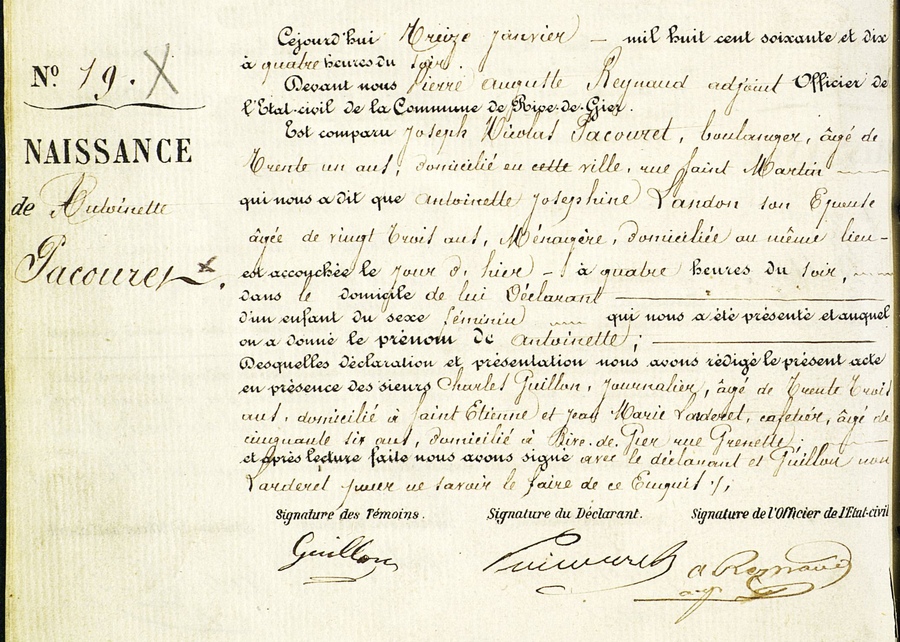 N° 19. X
NAISSANCE
de Antoinette
Pacouret x.
Cejourd'hui Treize janvier — mil huit cent soixante et dix
à quatre heures du soir.
Devant nous Pierre Auguste Reynaud adjoint Officier de
l'Etat-civil de la Commune de Rive-de-Gier.
Est comparu Joseph Nicolas Pacouret, boulanger, âgé de
Trente un ans, domicilié en cette ville, rue Saint Martin
qui nous a dit que Antoinette Josephine Landon son Epouse
âgée de vingt Trois ans, Ménagère, domiciliée au même lieu-
est accouchée le jour d'hier — à quatre heures du soir,
dans le domicile de lui Déclarant
d'un enfant du sexe féminin qui nous a été présenté et auquel
on a donné le prénom de Antoinette;
Desquelles déclaration et présentation nous avons rédigé le présent acte
en présence des sieurs Charles Guillon, Journalier, âgé de Trente Trois
ans, domicilié à Saint Etienne et Jean Marie Larderet, cafetier, âgé de
cinquante six ans, domicilié à Rive-de-Gier rue Grenette;
et après lecture faite nous avons signé avec le déclarant et Guillon non
Larderet pour ne savoir le faire de ce Enquis
Signature des Témoins. Signature du Déclarant. Signature de l'Officier de l'Etat-civil
Guillon Pacouret a Reynaud